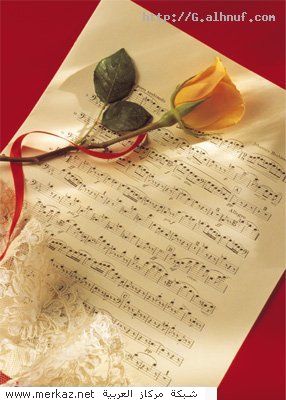 http://G.alhnuf.com
www.merkaz.net شبكة مركاز العربية